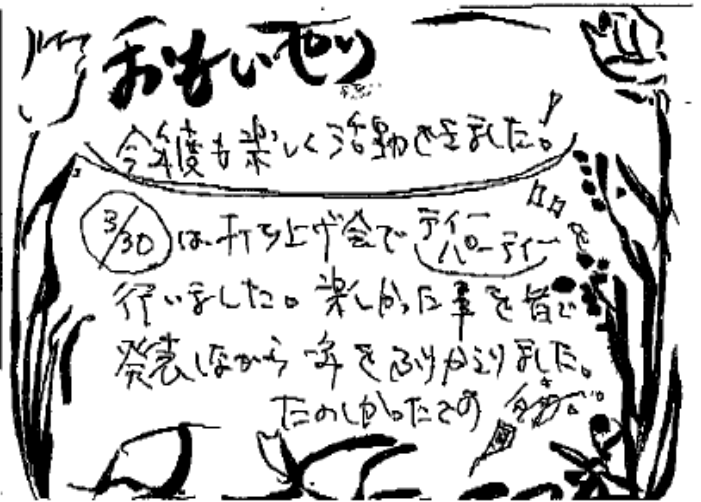 おもいやり
今年度も楽しく活動できました!
3/30は、打ち上げ会でティーパーティーを
行いました。楽しかった事を皆で
発表しながら一年をふりかえりました。
たのしかったでの